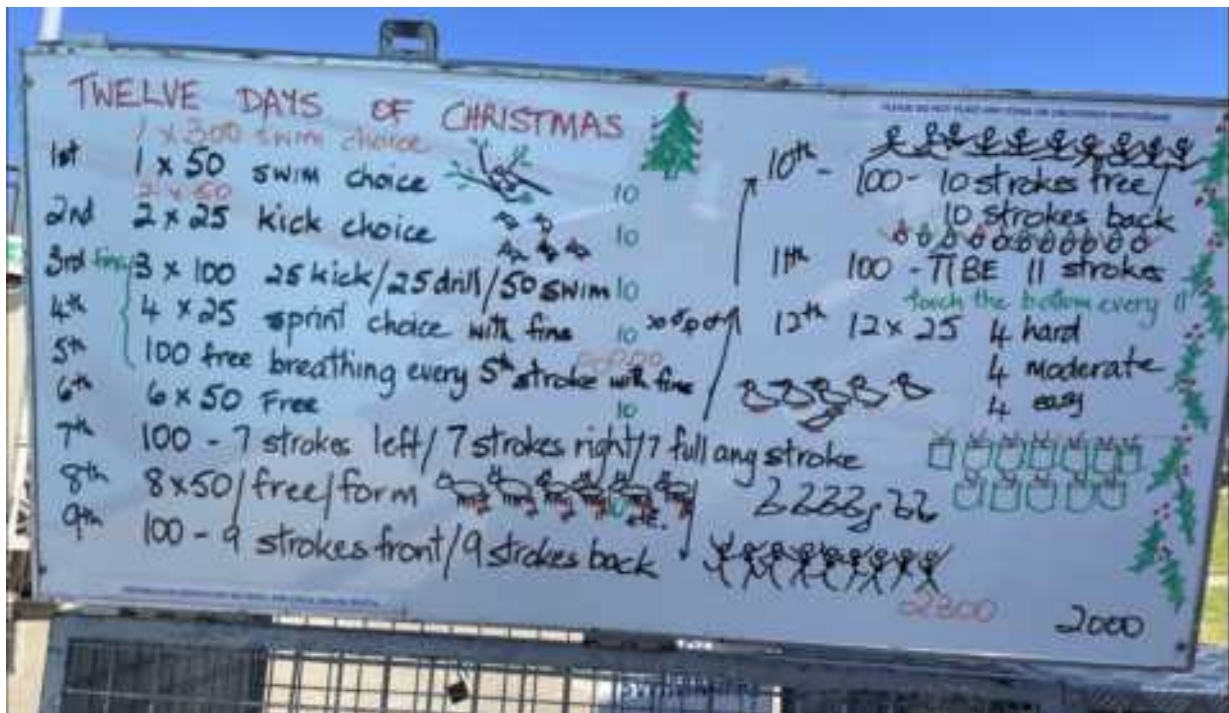 TWELVE DAYS OF CHRISTMAS
1 x 300 swim choice
1st 1 x 50 swim choice 10
2 x 50
2nd 2 x 25 kick choice 10
3rd fins 3 x 100 25 kick/25 drill/50 swim 10
4th 4 x 25 sprint choice with fins 10
5th 100 free breathing every 5th stroke with fins
6th 6 x 50 Free 10
7th 100 - 7 strokes left/7 strokes right/7 full any stroke
8th 8x50/free/form etc.
9th 100 - 9 strokes front/9 strokes back
10th - 100 - 10 strokes free/
10 strokes back
11th 100 - 11 strokes
touch the bottom every 11
12th 12 x 25 4 hard
4 moderate
4 easy
2300
2000